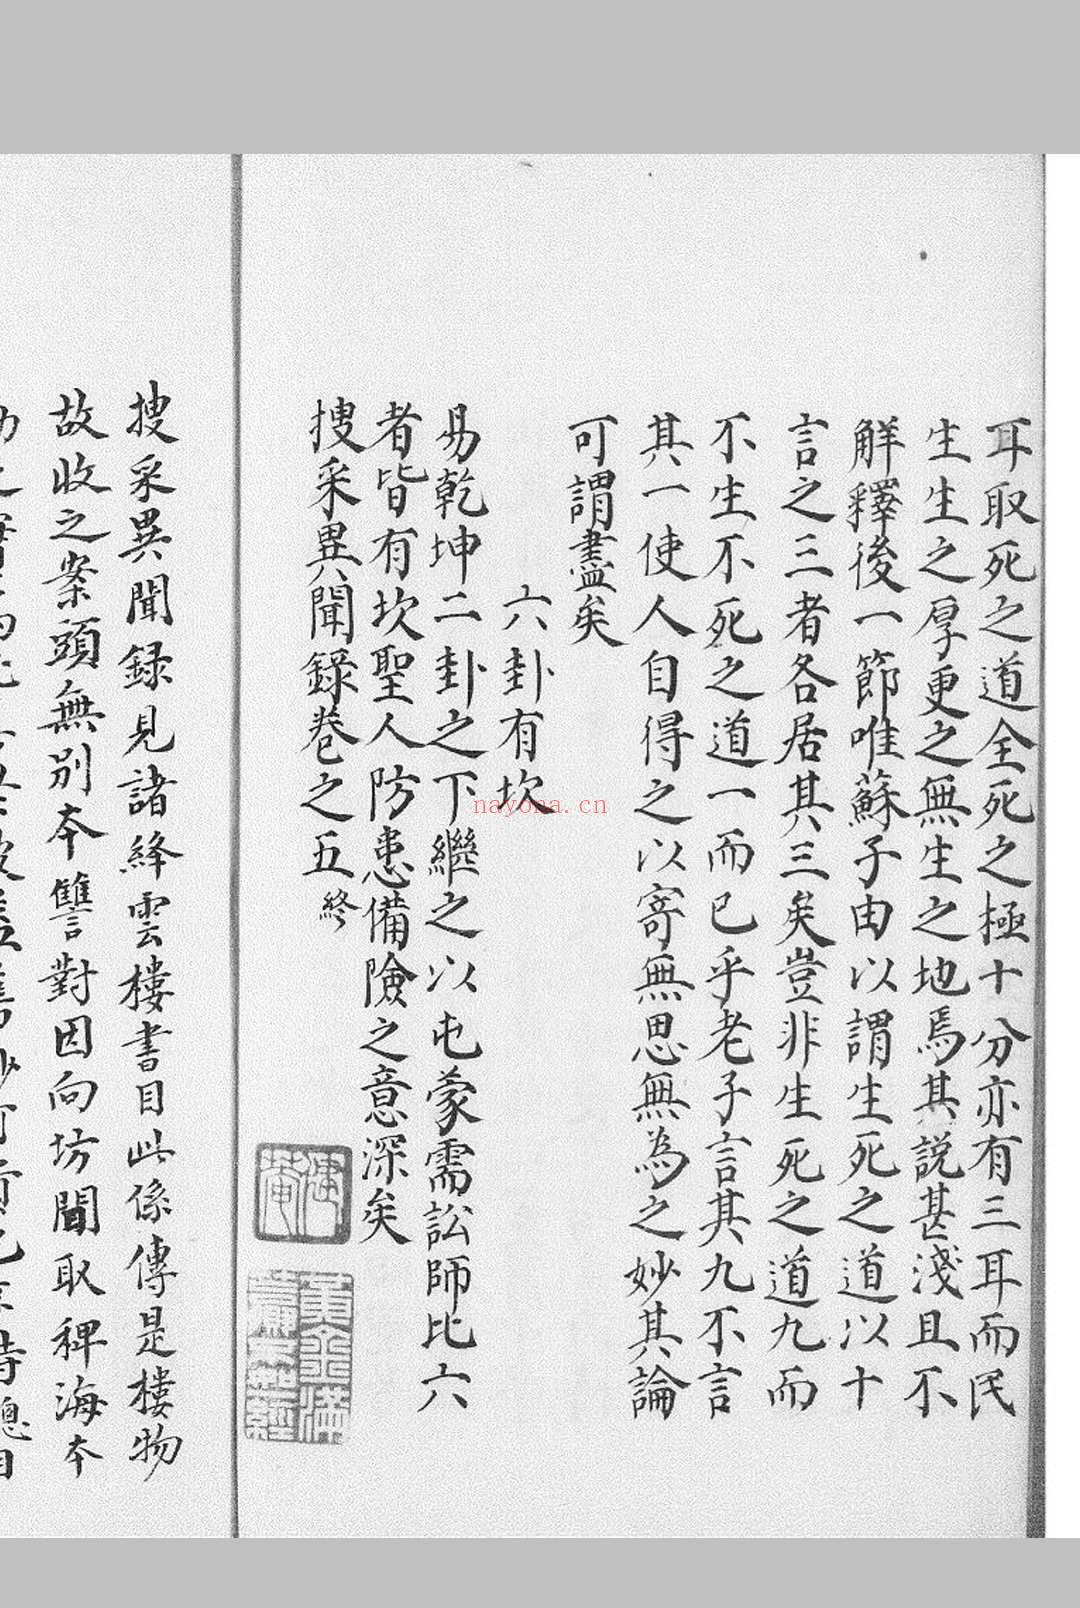 耳取死之道全死之極十分亦有三耳而民
生生之厚更之無生之地焉其説甚淺且不
解釋後一節唯蘇子由以謂生死之道以十
言之三者各居其三矣豈非生死之道九而
不生不死之道一而已乎老子言其九不言
其一使人自得之以寄無思無為之妙其論
可謂盡矣
六卦有坎
易乾坤二卦之下繼之以屯蒙需訟師比六
者皆有坎聖人防患備險之意深矣
搜采異聞錄卷之五終
搜采異聞録見諸絳雲樓書目此係傳是樓物
故收之案頭無別本讐對因向坊間取稗海本
nayona.cn